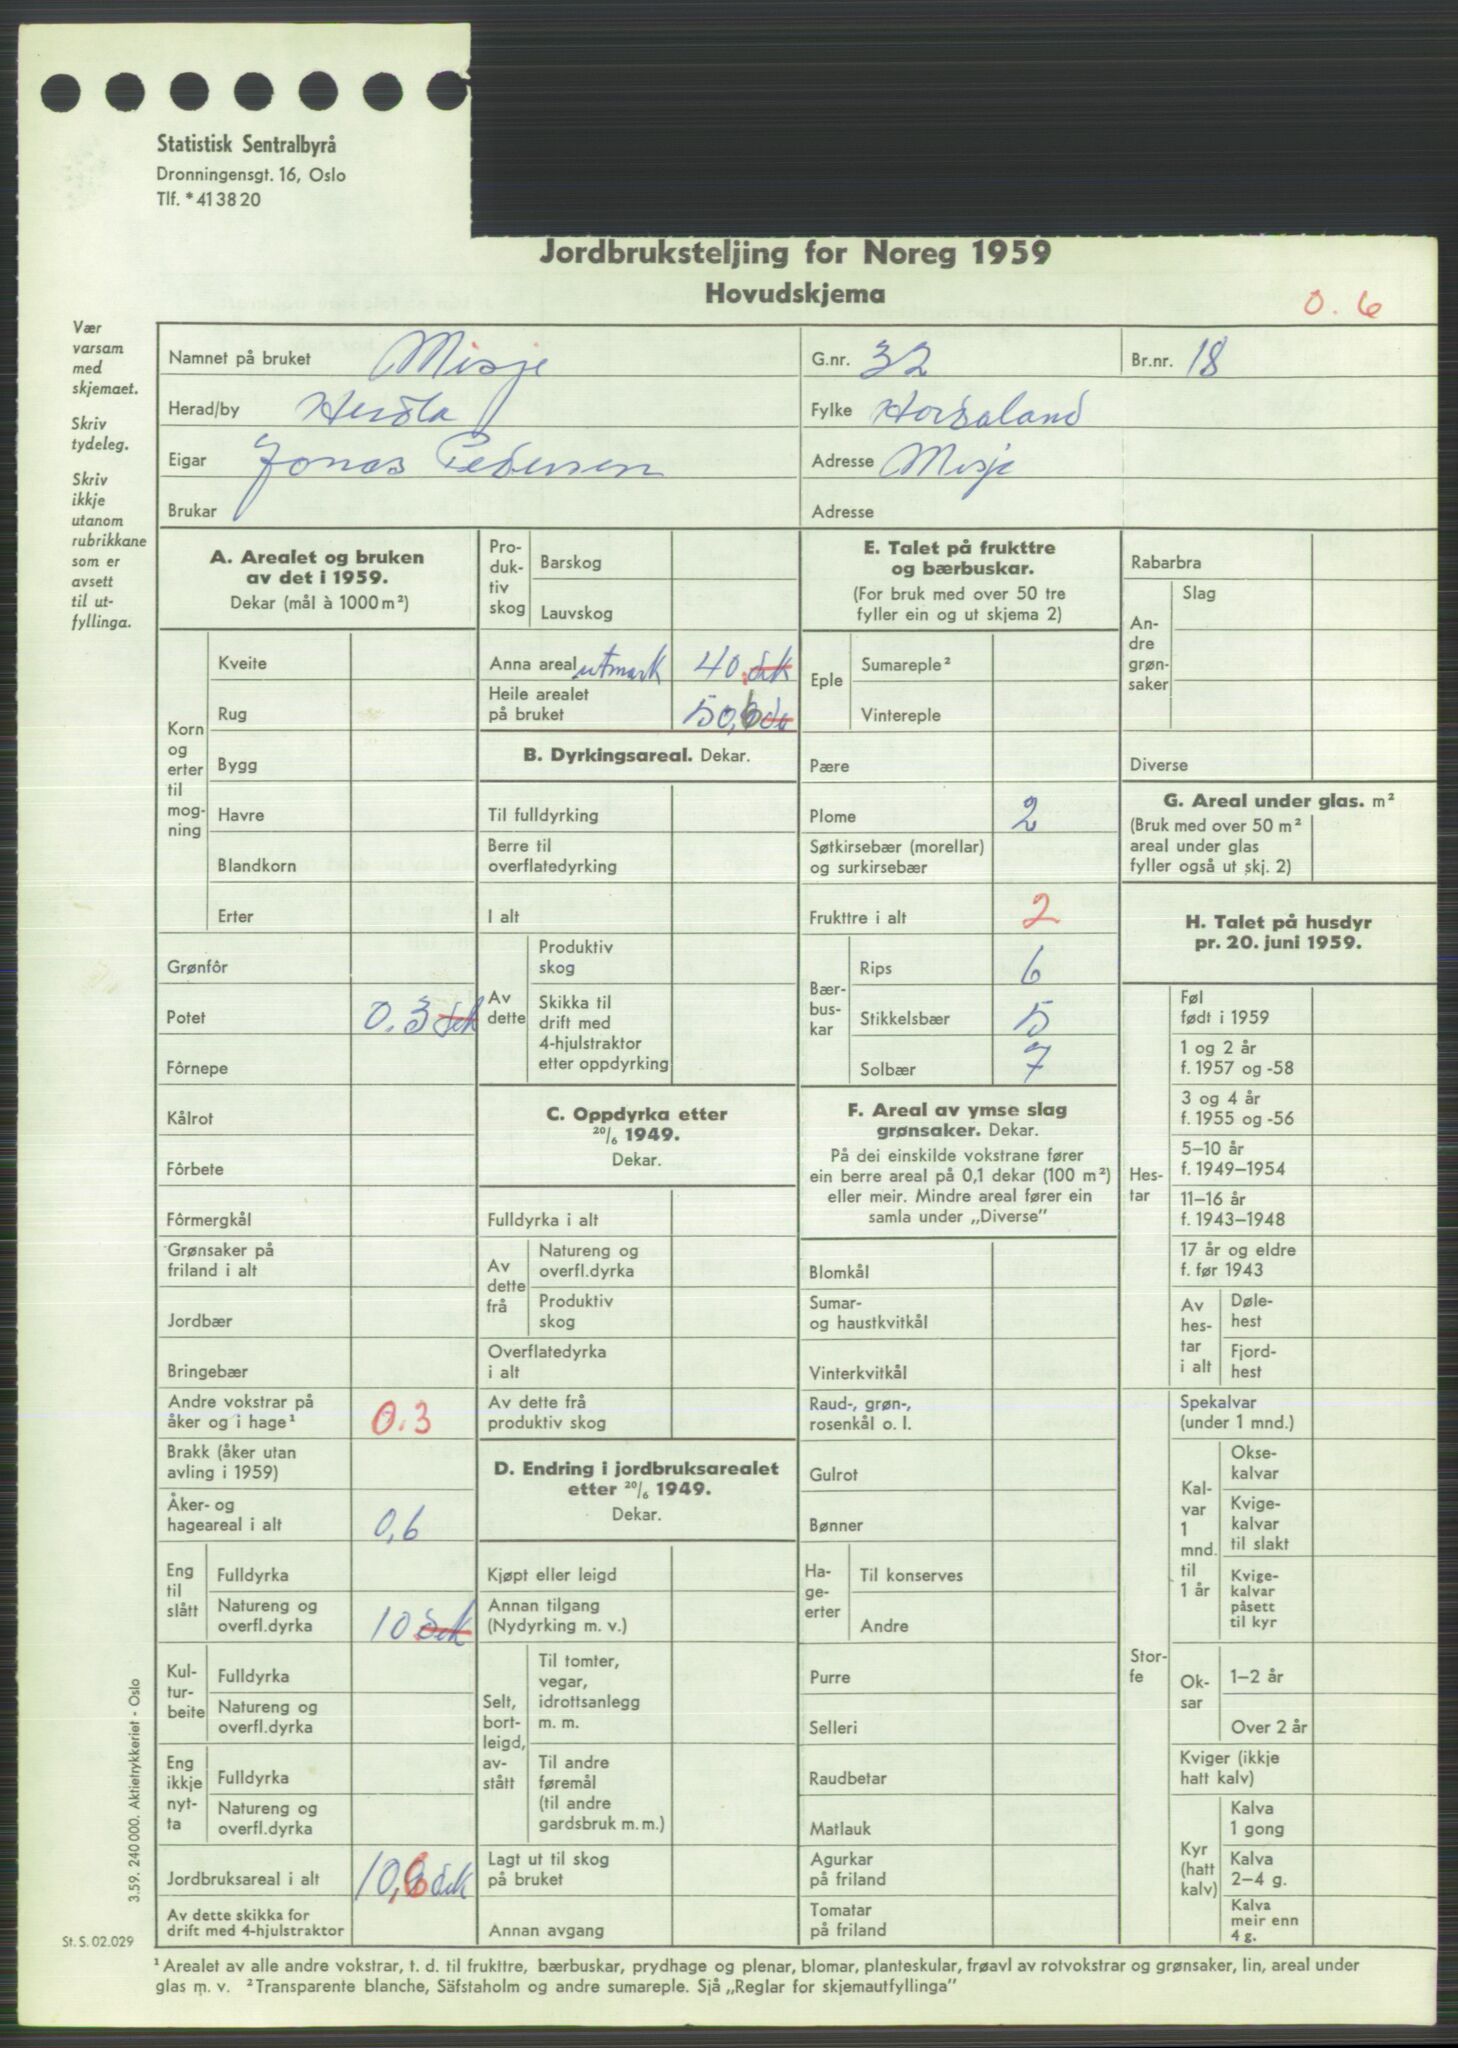 Statistisk Sentralbyrå
Dronningensgt. 16, Oslo
Tlf. *41 38 20
Jordbruksteljing for Noreg 1959
Hovudskjema
0.6
Vær
varsam
med
skjemaet.
Skriv
tydeleg.
Skriv
ikkje
utanom
rubrikkane
som er
avsett
til ut-
fyllinga.
Namnet på bruket Misje G.nr. 32 Br.nr. 18
Herad/by Herdla Fylke Hordaland
Eigar Jonas Pedersen Adresse Misje
Brukar Adresse
A. Arealet og bruken
av det i 1959.
Dekar (mål à 1000 m²)
Korn
og
erter
til
mog-
ning
Kveite
Rug
Bygg
Havre
Blandkorn
Erter
Grønfôr
Potet 0.3 dek
Fôrnepe
Kålrot
Fôrbete
Fôrmergkål
Grønsaker på
friland i alt
Jordbær
Bringebær
Andre vokstrar på
åker og i hage¹ 0.3
Brakk (åker utan
avling i 1959)
Åker- og
hageareal i alt 0,6
Eng
til
slått
Fulldyrka
Natureng og
overfl.dyrka 10 dek
Kul-
tur-
beite
Fulldyrka
Natureng og
overfl.dyrka
Eng
ikkje
nyt-
ta
Fulldyrka
Natureng og
overfl.dyrka
Jordbruksareal i alt 10,6 dek
Av dette skikka for
drift med 4-hjulstraktor
Pro-
duk-
tiv
skog
Barskog
Lauvskog
Anna areal utmark 40. dek
Heile arealet
på bruket 50,6 de
B. Dyrkingsareal. Dekar.
Til fulldyrking
Berre til
overflatedyrking
I alt
Av
dette
Produktiv
skog
Skikka til
drift med
4-hjulstraktor
etter oppdyrking
C. Oppdyrka etter
20/6 1949.
Dekar.
Fulldyrka i alt
Av
dette
frå
Natureng og
overfl.dyrka
Produktiv
skog
Overflatedyrka
i alt
Av dette frå
produktiv skog
D. Endring i jordbruksarealet
etter 20/6 1949.
Dekar.
Kjøpt eller leigd
Annan tilgang
(Nydyrking m. v.)
Selt,
bort-
leigd,
av-
stått
Til tomter,
vegar,
idrottsanlegg
m. m.
Til andre
føremål
(til andre
gardsbruk m. m.)
Lagt ut til skog
på bruket
Annan avgang
E. Talet på frukttre
og bærbuskar.
(For bruk med over 50 tre
fyller ein og ut skjema 2)
Eple
Sumareple²
Vintereple
Pære
Plome 2
Søtkirsebær (morellar)
og surkirsebær
Frukttre i alt 2
Bær-
bus-
kar
Rips 6
Stikkelsbær 5
Solbær 7
F. Areal av ymse slag
grønsaker. Dekar.
På dei einskilde vokstrane fører
ein berre areal på 0,1 dekar (100 m²)
eller meir. Mindre areal fører ein
samla under „Diverse”
Blomkål
Sumar-
og haustkvitkål
Vinterkvitkål
Raud-, grøn-,
rosenkål o. l.
Gulrot
Bønner
Ha-
ge-
erter
Til konserves
Andre
Purre
Selleri
Raudbetar
Matlauk
Agurkar
på friland
Tomatar
på friland
Rabarbra
An-
dre
grøn-
saker
Slag
Diverse
G. Areal under glas. m²
(Bruk med over 50 m²
areal under glas
fyller også ut skj. 2)
H. Talet på husdyr
pr. 20. juni 1959.
Hes-
tar
Føl
født i 1959
1 og 2 år
f. 1957 og -58
3 og 4 år
f. 1955 og -56
5–10 år
f. 1949–1954
11–16 år
f. 1943–1948
17 år og eldre
f. før 1943
Av
hes-
tar
i alt
Døle-
hest
Fjord-
hest
Stor-
fe
Spekalvar
(under 1 mnd.)
Kal-
var
1
mnd.
til
1 år
Okse-
kalvar
Kvige-
kalvar
til slakt
Kvige-
kalvar
påsett
til kyr
Ok-
sar
1–2 år
Over 2 år
Kviger (ikkje
hatt kalv)
Kyr
(hatt
kalv)
Kalva
1 gong
Kalva
2–4 g.
Kalva
meir enn
4 g.
3.59. 240 000. Aktietrykkeriet - Oslo
St. S. 02.029
¹ Arealet av alle andre vokstrar, t. d. til frukttre, bærbuskar, prydhage og plenar, blomar, planteskular, frøavl av rotvokstrar og grønsaker, lin, areal under
glas m. v. ² Transparente blanche, Säfstaholm og andre sumareple. Sjå „Reglar for skjemautfyllinga”